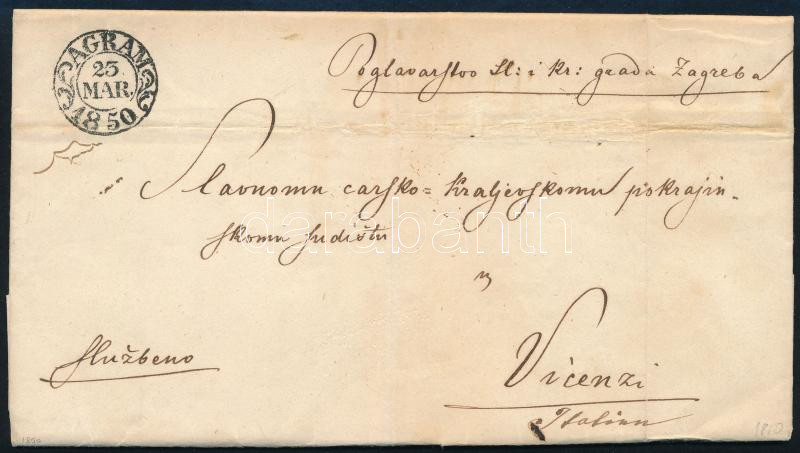 AGRAM
23
MAR.
1850
Poglavarstvo Sl: i Kr: grada Zagreba
Slavnomu carsko=Kraljevskomu pokrajin-
skomu sudištu
u
Vicenzi
Italien
službeno
darabanth
1850
1850